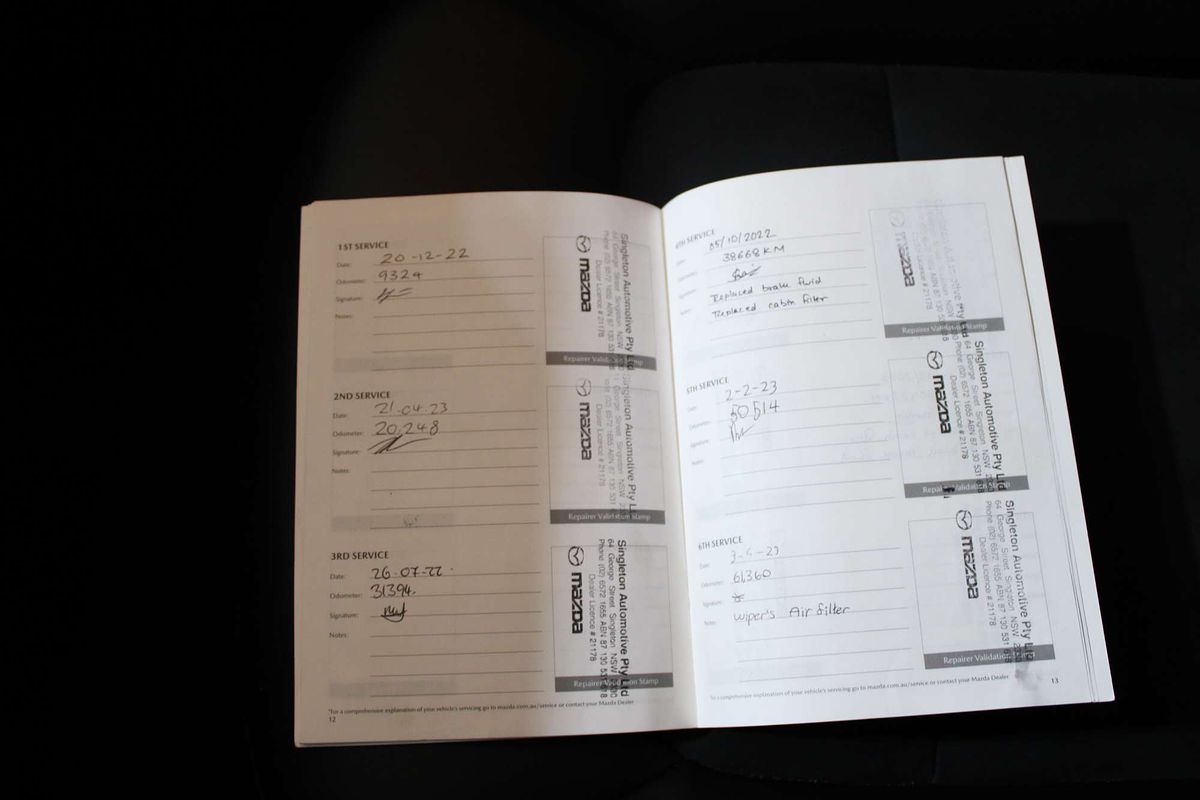 1ST SERVICE
Date: 20-12-22
Odometer: 9324
Signature:
Notes:
mazda
Singleton Automotive Pty Ltd
64 George Street Singleton NSW
Phone (02) 6572 1655 ABN 87 130 531
Dealer Licence # 21178
Repairer Validation Stamp
2ND SERVICE
Date: 21.04.23
Odometer: 20,248
Signature:
Notes:
mazda
Singleton Automotive Pty
George Street Singleton NSW
6572 1655 ABN 87 130 531
Dealer Licence # 21178
Repairer Validation Stamp
3RD SERVICE
Date: 26-07-22.
Odometer: 31394.
Signature:
Notes:
mazda
Singleton Automotive Pty Ltd
64 George Street Singleton NSW
Phone (02) 6572 1655 ABN 87 130 531
Dealer Licence # 21178
Repairer Validation Stamp
*For a comprehensive explanation of your vehicle's servicing go to mazda.com.au/service or contact your Mazda Dealer
12
4TH SERVICE
Date: 05/10/2022
Odometer: 38668 KM
Signature:
Notes: Replaced brake fluid
Replaced cabin filter
mazda
Repairer Validation Stamp
5TH SERVICE
Date: 2-2-23
Odometer: 50514
Signature:
Notes:
mazda
Singleton Automotive Pty Ltd
64 George Street Singleton NSW
Phone (02) 6572 1655 ABN 87 130 531
Dealer Licence # 21178
Repairer Validation Stamp
6TH SERVICE
Date:
Odometer: 61,360
Signature:
Notes: wiper's Air filter
mazda
Singleton Automotive Pty Ltd
64 George Street Singleton NSW
Phone (02) 6572 1655 ABN 87 130 531
Dealer Licence # 21178
Repairer Validation Stamp
*For a comprehensive explanation of your vehicle's servicing go to mazda.com.au/service or contact your Mazda Dealer
13